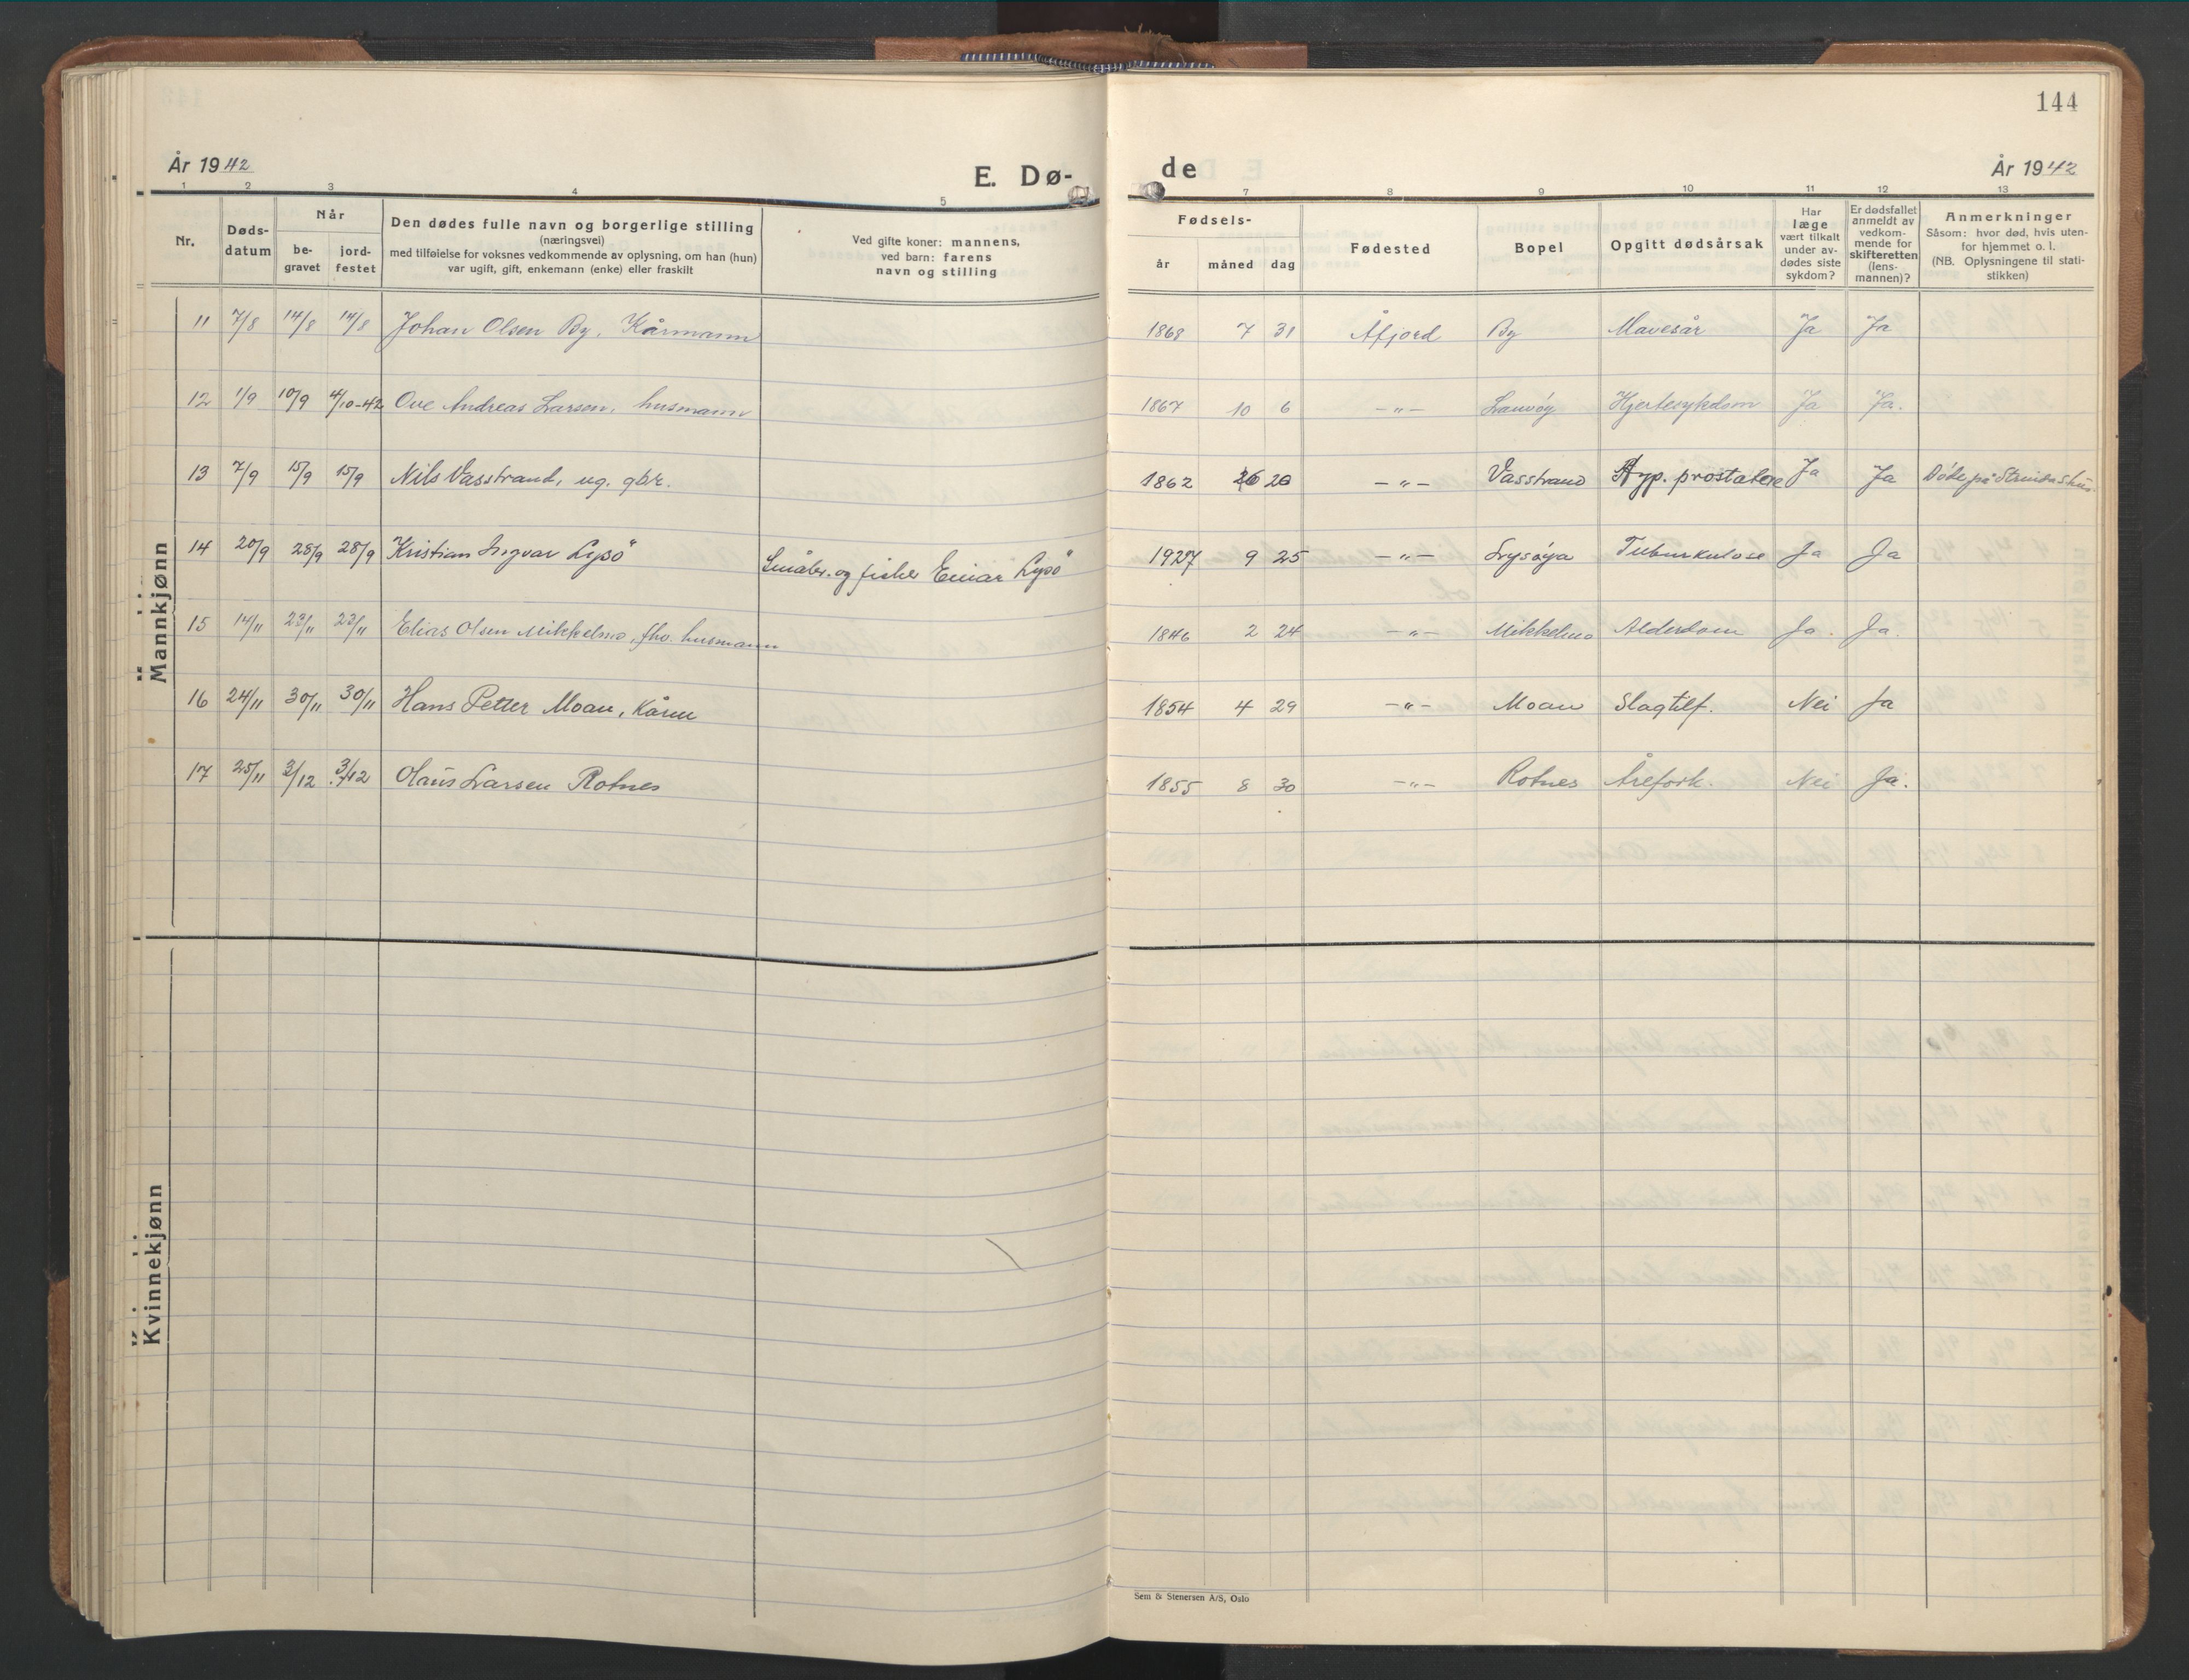 144
År 1942
E. Dø-
de
År 1942
1 2 3 4 5
7 8 9 10 11 12 13
Nr.
Døds-
datum
Når
be-
gravet
jord-
festet
Den dødes fulle navn og borgerlige stilling
(næringsvei)
med tilføielse for voksnes vedkommende av oplysning, om han (hun)
var ugift, gift, enkemann (enke) eller fraskilt
Ved gifte koner: mannens,
ved barn: farens
navn og stilling
Fødsels-
år måned dag
Fødested
Bopel
Opgitt dødsårsak
Har
læge
vært tilkalt
under av-
dødes siste
sykdom?
Er dødsfallet
anmeldt av
vedkom-
mende for
skifteretten
(lens-
mannen)?
Anmerkninger
Såsom: hvor død, hvis uten-
for hjemmet o. l.
(NB. Oplysningene til stati-
stikken)
Mannkjønn
11 7/8 14/8 14/8 Johan Olsen By, Kårmann 1868 7 31 Åfjord By Mavesår Ja Ja
12 1/9 10/9 4/10-42 Ove Andreas Larsen, husmann 1867 10 6 -"- Lauvøy Hjertesykdom Ja Ja.
13 7/9 15/9 15/9 Nils Vasstrand, ug. gbr. 1862 20 -"- Vasstrand Hyp. prostatae Ja Ja Døde på
14 20/9 28/9 28/9 Kristian Ingvar Lysø Småbr. og fisker Einar Lysø 1927 9 25 -"- Lysøya Tuberkulose Ja Ja
15 14/11 23/11 23/11 Elias Olsen Mikkelmo, fhv. husmann 1846 2 24 -"- Mikkelmo Alderdom Ja. Ja.
16 24/11 30/11 30/11 Hans Petter Moan, Kårm 1854 4 29 -"- Moan Slagtilf. Nei Ja
17 25/11 3/12 3/12 Olaus Larsen Rotnes 1855 8 30 -"- Rotnes Årefork. Nei Ja.
Kvinnekjønn
Sem & Stenersen A/S, Oslo